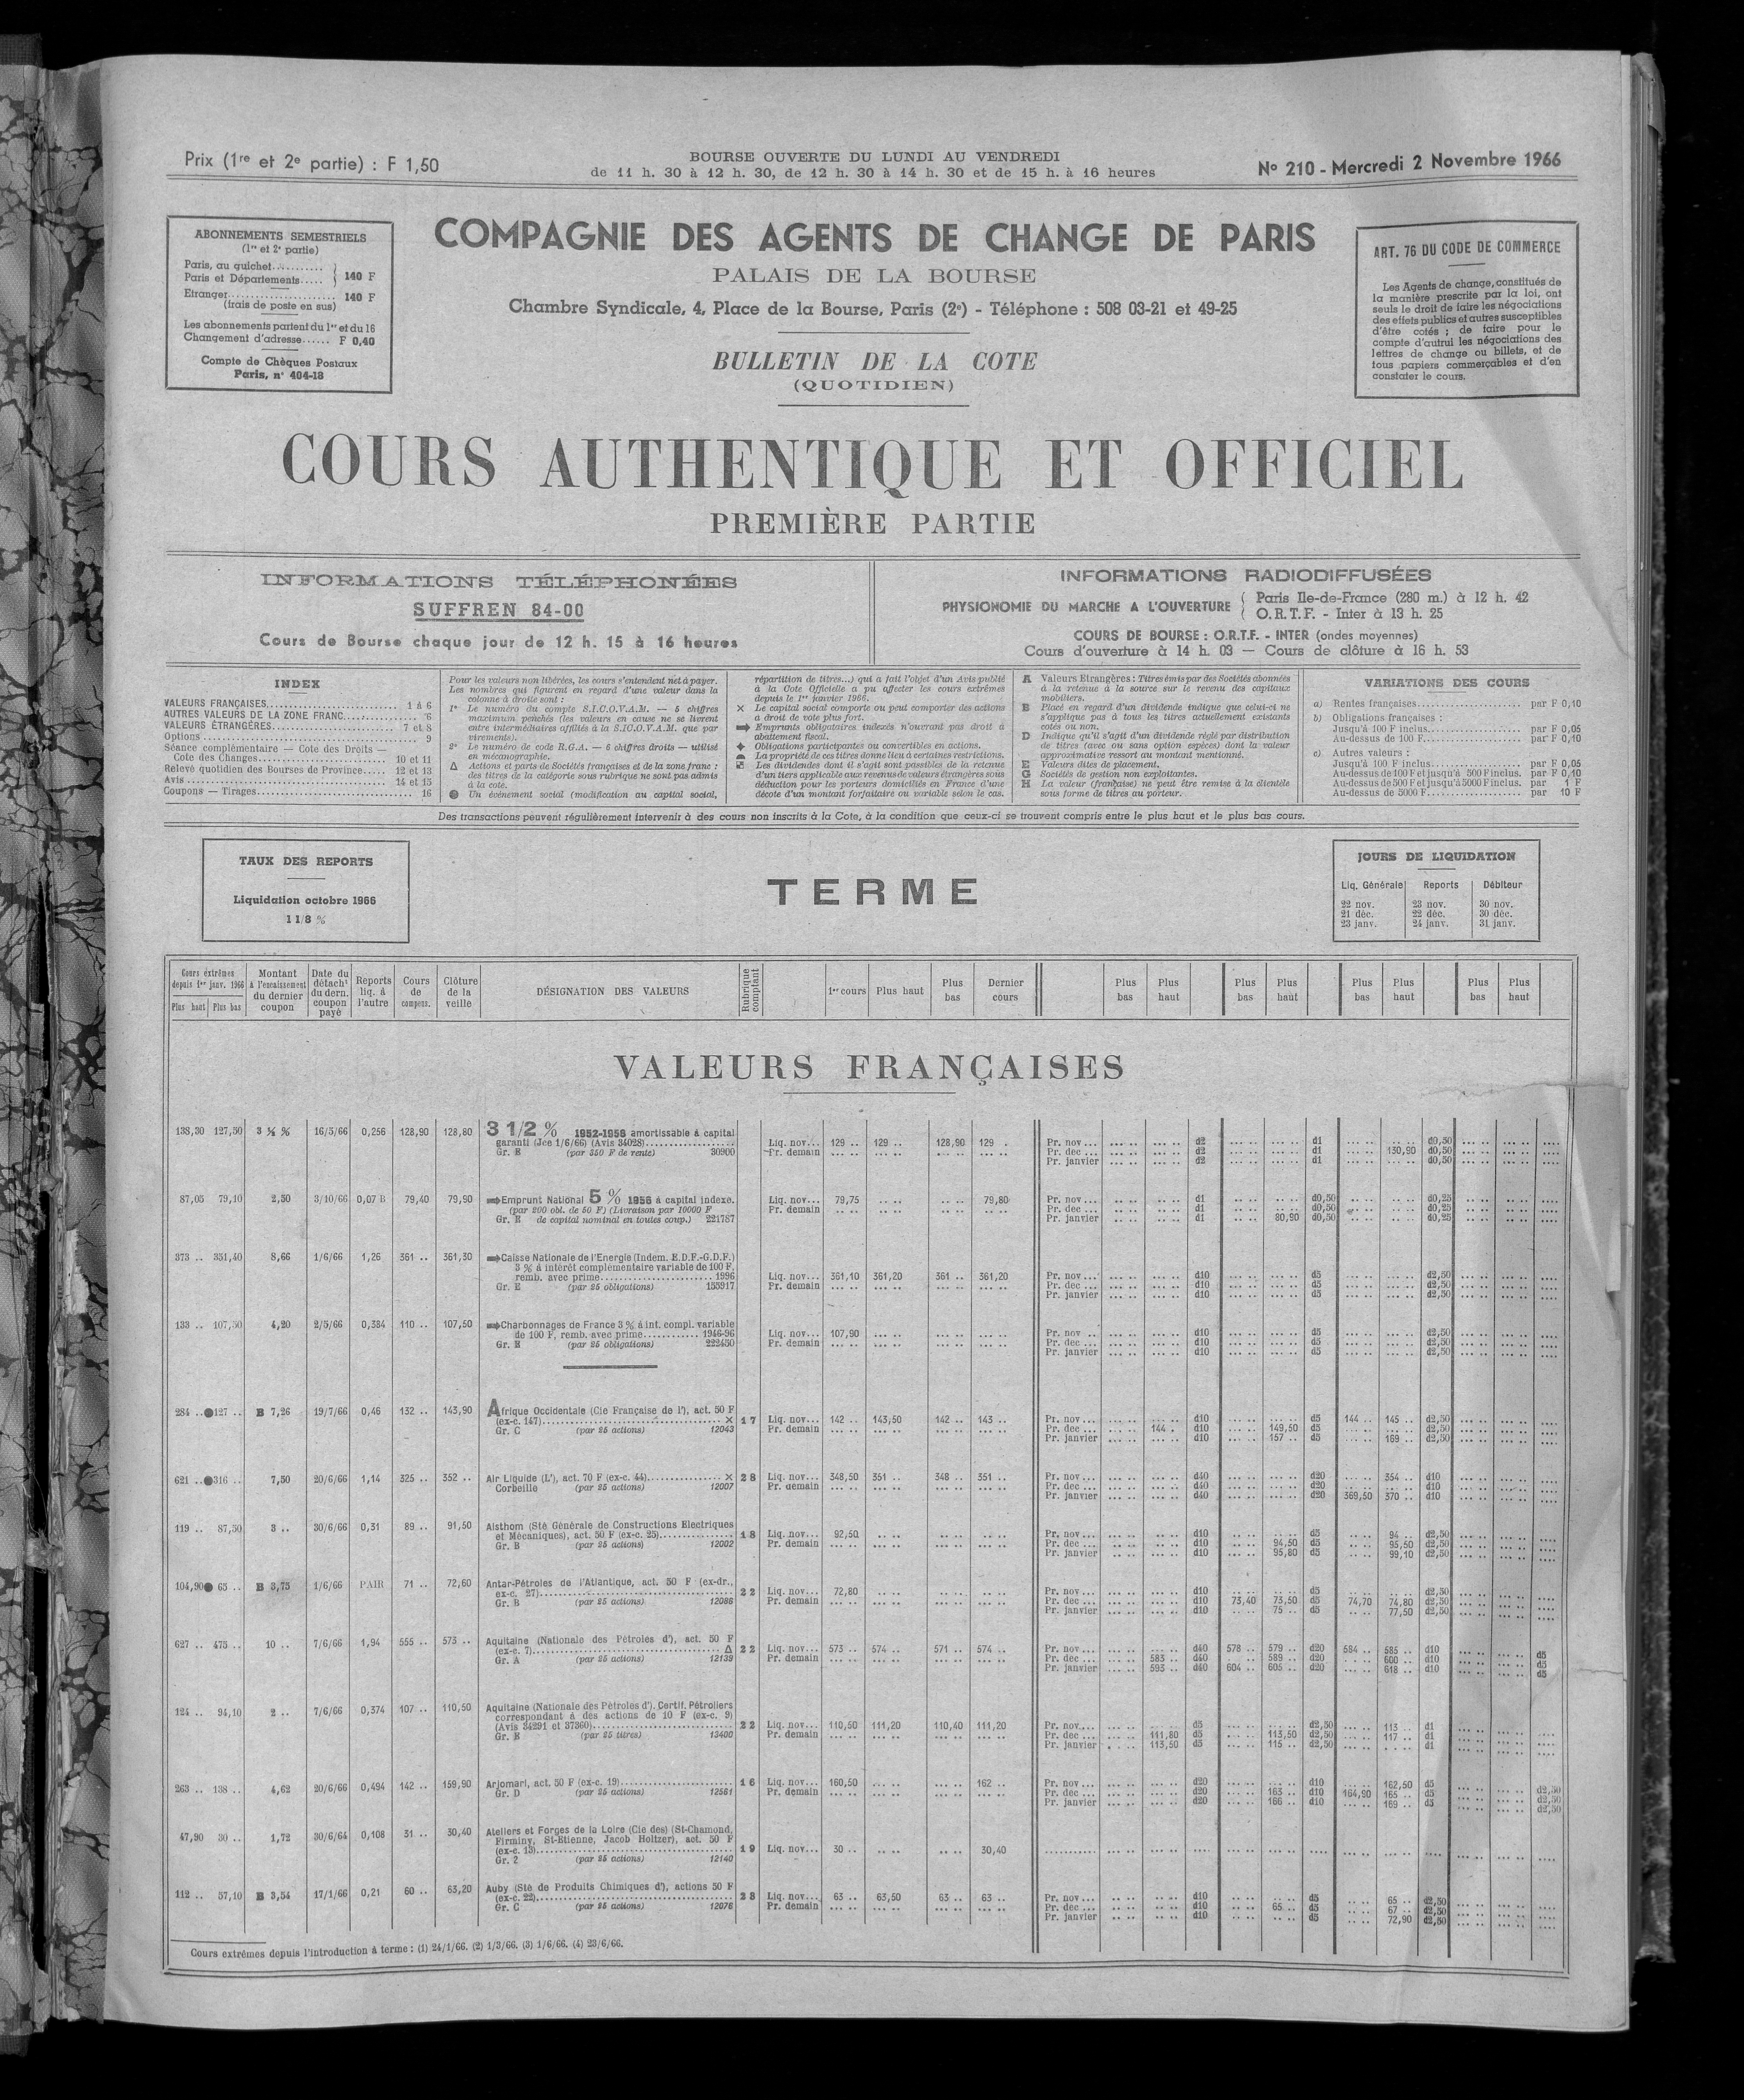 Prix (1re et 2e partie) : F 1,50
BOURSE OUVERTE DU LUNDI AU VENDREDI
de 11 h. 30 à 12 h. 30, de 12 h. 30 à 14 h. 30 et de 15 h. à 16 heures
No 210 - Mercredi 2 Novembre 1966
ABONNEMENTS SEMESTRIELS
(1er et 2e partie)
Paris, au guichet..........
Paris et Départements..... 140 F
Etranger...................... 140 F
(frais de poste en sus)
Les abonnements partent du 1er et du 16
Changement d'adresse...... F 0,40
Compte de Chèques Postaux
Paris, n° 404-18
COMPAGNIE DES AGENTS DE CHANGE DE PARIS
PALAIS DE LA BOURSE
Chambre Syndicale, 4, Place de la Bourse, Paris (2e) - Téléphone : 508 03-21 et 49-25
BULLETIN DE LA COTE
(QUOTIDIEN)
ART. 76 DU CODE DE COMMERCE
Les Agents de change, constitués de
la manière prescrite par la loi, ont
seuls le droit de faire les négociations
des effets publics et autres susceptibles
d'être cotés ; de faire pour le
compte d'autrui les négociations des
lettres de change ou billets, et de
tous papiers commerçables et d'en
constater le cours.
COURS AUTHENTIQUE ET OFFICIEL
PREMIÈRE PARTIE
INFORMATIONS TÉLÉPHONÉES
SUFFREN 84-00
Cours de Bourse chaque jour de 12 h. 15 à 16 heures
INFORMATIONS RADIODIFFUSÉES
PHYSIONOMIE DU MARCHE A L'OUVERTURE { Paris Ile-de-France (280 m.) à 12 h. 42
O.R.T.F. - Inter à 13 h. 25
COURS DE BOURSE : O.R.T.F. - INTER (ondes moyennes)
Cours d'ouverture à 14 h. 03 — Cours de clôture à 16 h. 53
INDEX
VALEURS FRANÇAISES.................... 1 à 6
AUTRES VALEURS DE LA ZONE FRANC............ 6
VALEURS ÉTRANGÈRES.................... 7 et 8
Options .................... 9
Séance complémentaire — Cote des Droits —
Cote des Changes.................... 10 et 11
Relevé quotidien des Bourses de Province..... 12 et 13
Avis .................... 14 et 15
Coupons — Tirages.................... 16
Pour les valeurs non libérées, les cours s'entendent net à payer.
Les nombres qui figurent en regard d'une valeur dans la
colonne à droite sont :
1° Le numéro du compte S.I.C.O.V.A.M. — 5 chiffres
maximum penchés (les valeurs en cause ne se livrent
entre intermédiaires affiliés à la S.I.C.O.V.A.M. que par
virements).
2° Le numéro de code R.G.A. — 6 chiffres droits — utilisé
en mécanographie.
Δ Actions et parts de Sociétés françaises et de la zone franc :
des titres de la catégorie sous rubrique ne sont pas admis
à la cote.
● Un événement social (modification au capital social,
répartition de titres...) qui a fait l'objet d'un Avis publié
à la Cote Officielle a pu affecter les cours extrêmes
depuis le 1er janvier 1966.
× Le capital social comporte ou peut comporter des actions
à droit de vote plus fort.
➡ Emprunts obligataires indexés n'ouvrant pas droit à
abattement fiscal.
✦ Obligations participantes ou convertibles en actions.
La propriété de ces titres donne lieu à certaines restrictions.
Les dividendes dont il s'agit sont passibles de la retenue
d'un tiers applicable aux revenus de valeurs étrangères sous
déduction pour les porteurs domiciliés en France d'une
décote d'un montant forfaitaire ou variable selon le cas.
A Valeurs Etrangères : Titres émis par des Sociétés abonnées
à la retenue à la source sur le revenu des capitaux
mobiliers.
B Placé en regard d'un dividende indique que celui-ci ne
s'applique pas à tous les titres actuellement existants
cotés ou non.
D Indique qu'il s'agit d'un dividende réglé par distribution
de titres (avec ou sans option espèces) dont la valeur
approximative ressort au montant mentionné.
E Valeurs dites de placement.
G Sociétés de gestion non exploitantes.
H La valeur (française) ne peut être remise à la clientèle
sous forme de titres au porteur.
VARIATIONS DES COURS
a) Rentes françaises.................... par F 0,10
b) Obligations françaises :
Jusqu'à 100 F inclus.................... par F 0,05
Au-dessus de 100 F.................... par F 0,10
c) Autres valeurs :
Jusqu'à 100 F inclus.................... par F 0,05
Au-dessus de 100 F et jusqu'à 500 F inclus. par F 0,10
Au-dessus de 500 F et jusqu'à 5000 F inclus. par 1 F
Au-dessus de 5000 F.................... par 10 F
Des transactions peuvent régulièrement intervenir à des cours non inscrits à la Cote, à la condition que ceux-ci se trouvent compris entre le plus haut et le plus bas cours.
TAUX DES REPORTS
Liquidation octobre 1966
1 1/8 %
TERME
JOURS DE LIQUIDATION
Liq. Générale Reports Débiteur
22 nov. 23 nov. 30 nov.
21 déc. 22 déc. 30 déc.
23 janv. 24 janv. 31 janv.
Cours extrêmes depuis 1er janv. 1966 Plus haut Plus bas
Montant à l'encaissement du dernier coupon
Date du détacht du dern. coupon payé
Reports liq. à l'autre
Cours de compens.
Clôture de la veille
DÉSIGNATION DES VALEURS
Rubrique comptant
1er cours Plus haut Plus bas Dernier cours
Plus bas Plus haut Plus bas Plus haut Plus bas Plus haut Plus bas Plus haut
VALEURS FRANÇAISES
138,30 127,50 3 ½ % 16/5/66 0,256 128,90 128,80 3 1/2 % 1952-1958 amortissable à capital
garanti (Jce 1/6/66) (Avis 34028).......... Liq. nov... 129 .. 129 .. 128,90 129 . Pr. nov ... d2 d1 d0,50
Gr. E (par 350 F de rente) 30900 Pr. demain Pr. dec ... d2 d1 130,90 d0,50
Pr. janvier d2 d1 d0,50
87,05 79,10 2,50 3/10/66 0,07 B 79,40 79,90 ➡Emprunt National 5 % 1956 à capital indexé. Liq. nov... 79,75 79,80 Pr. nov ... d1 d0,50 d0,25
(par 200 obl. de 50 F) (Livraison par 10000 F Pr. demain Pr. dec ... d1 d0,50 d0,25
Gr. E de capital nominal en toutes coup.) 221787 Pr. janvier d1 80,90 d0,50 d0,25
373 .. 351,40 8,66 1/6/66 1,26 361 .. 361,30 ➡Caisse Nationale de l'Energie (Indem. E.D.F.-G.D.F.)
3 % à intérêt complémentaire variable de 100 F.
remb. avec prime.................... 1996 Liq. nov... 361,10 361,20 361 .. 361,20 Pr. nov ... d10 d5 d2,50
Gr. E (par 25 obligations) 153917 Pr. demain Pr. dec ... d10 d5 d2,50
Pr. janvier d10 d5 d2,50
133 .. 107,50 4,20 2/5/66 0,384 110 .. 107,50 ➡Charbonnages de France 3 % à int. compl. variable
de 100 F, remb. avec prime............ 1946-96 Liq. nov... 107,90 Pr. nov .. d10 d5 d2,50
Gr. E (par 25 obligations) 222450 Pr. demain Pr. dec ... d10 d5 d2,50
Pr. janvier d10 d5 d2,50
284 ..●127 .. B 7,26 19/7/66 0,46 132 .. 143,90 Afrique Occidentale (Cie Française de l'), act. 50 F
(ex-c. 147).................... × 17 Liq. nov... 142 .. 143,50 142 .. 143 .. Pr. nov ... d10 d5 144 .. 145 .. d2,50
Gr. C (par 25 actions) 12043 Pr. demain Pr. dec ... 144 . d10 149,50 d5 d2,50
Pr. janvier d10 157 .. d5 169 .. d2,50
621 ..●316 .. 7,50 20/6/66 1,14 325 .. 352 .. Air Liquide (L'), act. 70 F (ex-c. 44)............ × 28 Liq. nov... 348,50 351 .. 348 .. 351 .. Pr. nov ... d40 d20 354 .. d10
Corbeille (par 25 actions) 12007 Pr. demain Pr. dec ... d40 d20 d10
Pr. janvier d40 d20 369,50 370 .. d10
119 .. 87,50 3 .. 30/6/66 0,31 89 .. 91,50 Alsthom (Sté Générale de Constructions Electriques
et Mécaniques), act. 50 F (ex-c. 25)............ 18 Liq. nov... 92,50 Pr. nov ... d10 d5 94 .. d2,50
Gr. B (par 25 actions) 12002 Pr. demain Pr. dec ... d10 94,50 d5 95,50 d2,50
Pr. janvier d10 95,80 d5 99,10 d2,50
104,90● 65 .. B 3,75 1/6/66 PAIR 71 .. 72,60 Antar-Pétroles de l'Atlantique, act. 50 F (ex-dr.,
ex-c. 27).................... 22 Liq. nov... 72,80 Pr. nov ... d10 d5 d2,50
Gr. B (par 25 actions) 12088 Pr. demain Pr. dec ... d10 73,40 73,50 d5 74,70 74,80 d2,50
Pr. janvier d10 75 .. d5 77,50 d2,50
627 .. 475 .. 10 .. 7/6/66 1,94 555 .. 573 .. Aquitaine (Nationale des Pétroles d'), act. 50 F
(ex-c. 7).................... Δ 22 Liq. nov... 573 .. 574 .. 571 .. 574 .. Pr. nov ... d40 578 .. 579 .. d20 584 .. 585 .. d10 d5
Gr. A (par 25 actions) 12139 Pr. demain Pr. dec ... 583 .. d40 589 .. d20 600 .. d10 d5
Pr. janvier 593 .. d40 604 .. 605 .. d20 618 .. d10 d5
124 .. 94,10 2 .. 7/6/66 0,374 107 .. 110,50 Aquitaine (Nationale des Pétroles d'), Certif. Pétroliers
correspondant à des actions de 10 F (ex-c. 9)
(Avis 34291 et 37360).................... 22 Liq. nov... 110,50 111,20 110,40 111,20 Pr. nov.... d5 d2,50 113 .. d1
Gr. E (par 25 titres) 13400 Pr. demain Pr. dec ... 111,80 d5 113,50 d2,50 117 .. d1
Pr. janvier 113,50 d5 115 .. d2,50 d1
263 .. 138 .. 4,62 20/6/66 0,494 142 .. 159,90 Arjomari, act. 50 F (ex-c. 19)............ 16 Liq. nov... 160,50 162 .. Pr. nov ... d20 d10 162,50 d5 d2,50
Gr. D (par 25 actions) 12561 Pr. demain Pr. dec ... d20 163 .. d10 164,90 165 .. d5 d2,50
Pr. janvier d20 166 .. d10 169 .. d5 d2,50
47,90 30 .. 1,72 30/6/64 0,108 31 .. 30,40 Ateliers et Forges de la Loire (Cie des) (St-Chamond,
Firminy, St-Etienne, Jacob Holtzer), act. 50 F
(ex-c. 13).................... 19 Liq. nov... 30 .. 30,40
Gr. 2 (par 25 actions) 12140
112 .. 57,10 B 3,54 17/1/66 0,21 60 .. 63,20 Auby (Sté de Produits Chimiques d'), actions 50 F
(ex-c. 22).................... 28 Liq. nov... 63 .. 63,50 63 .. 63 .. Pr. nov ... d10 d5 65 .. d2,50
Gr. C (par 25 actions) 12076 Pr. demain Pr. dec ... d10 65 .. d5 67 .. d2,50
Pr. janvier d10 d5 72,90 d2,50
Cours extrêmes depuis l'introduction à terme : (1) 24/1/66. (2) 1/3/66. (3) 1/6/66. (4) 23/6/66.